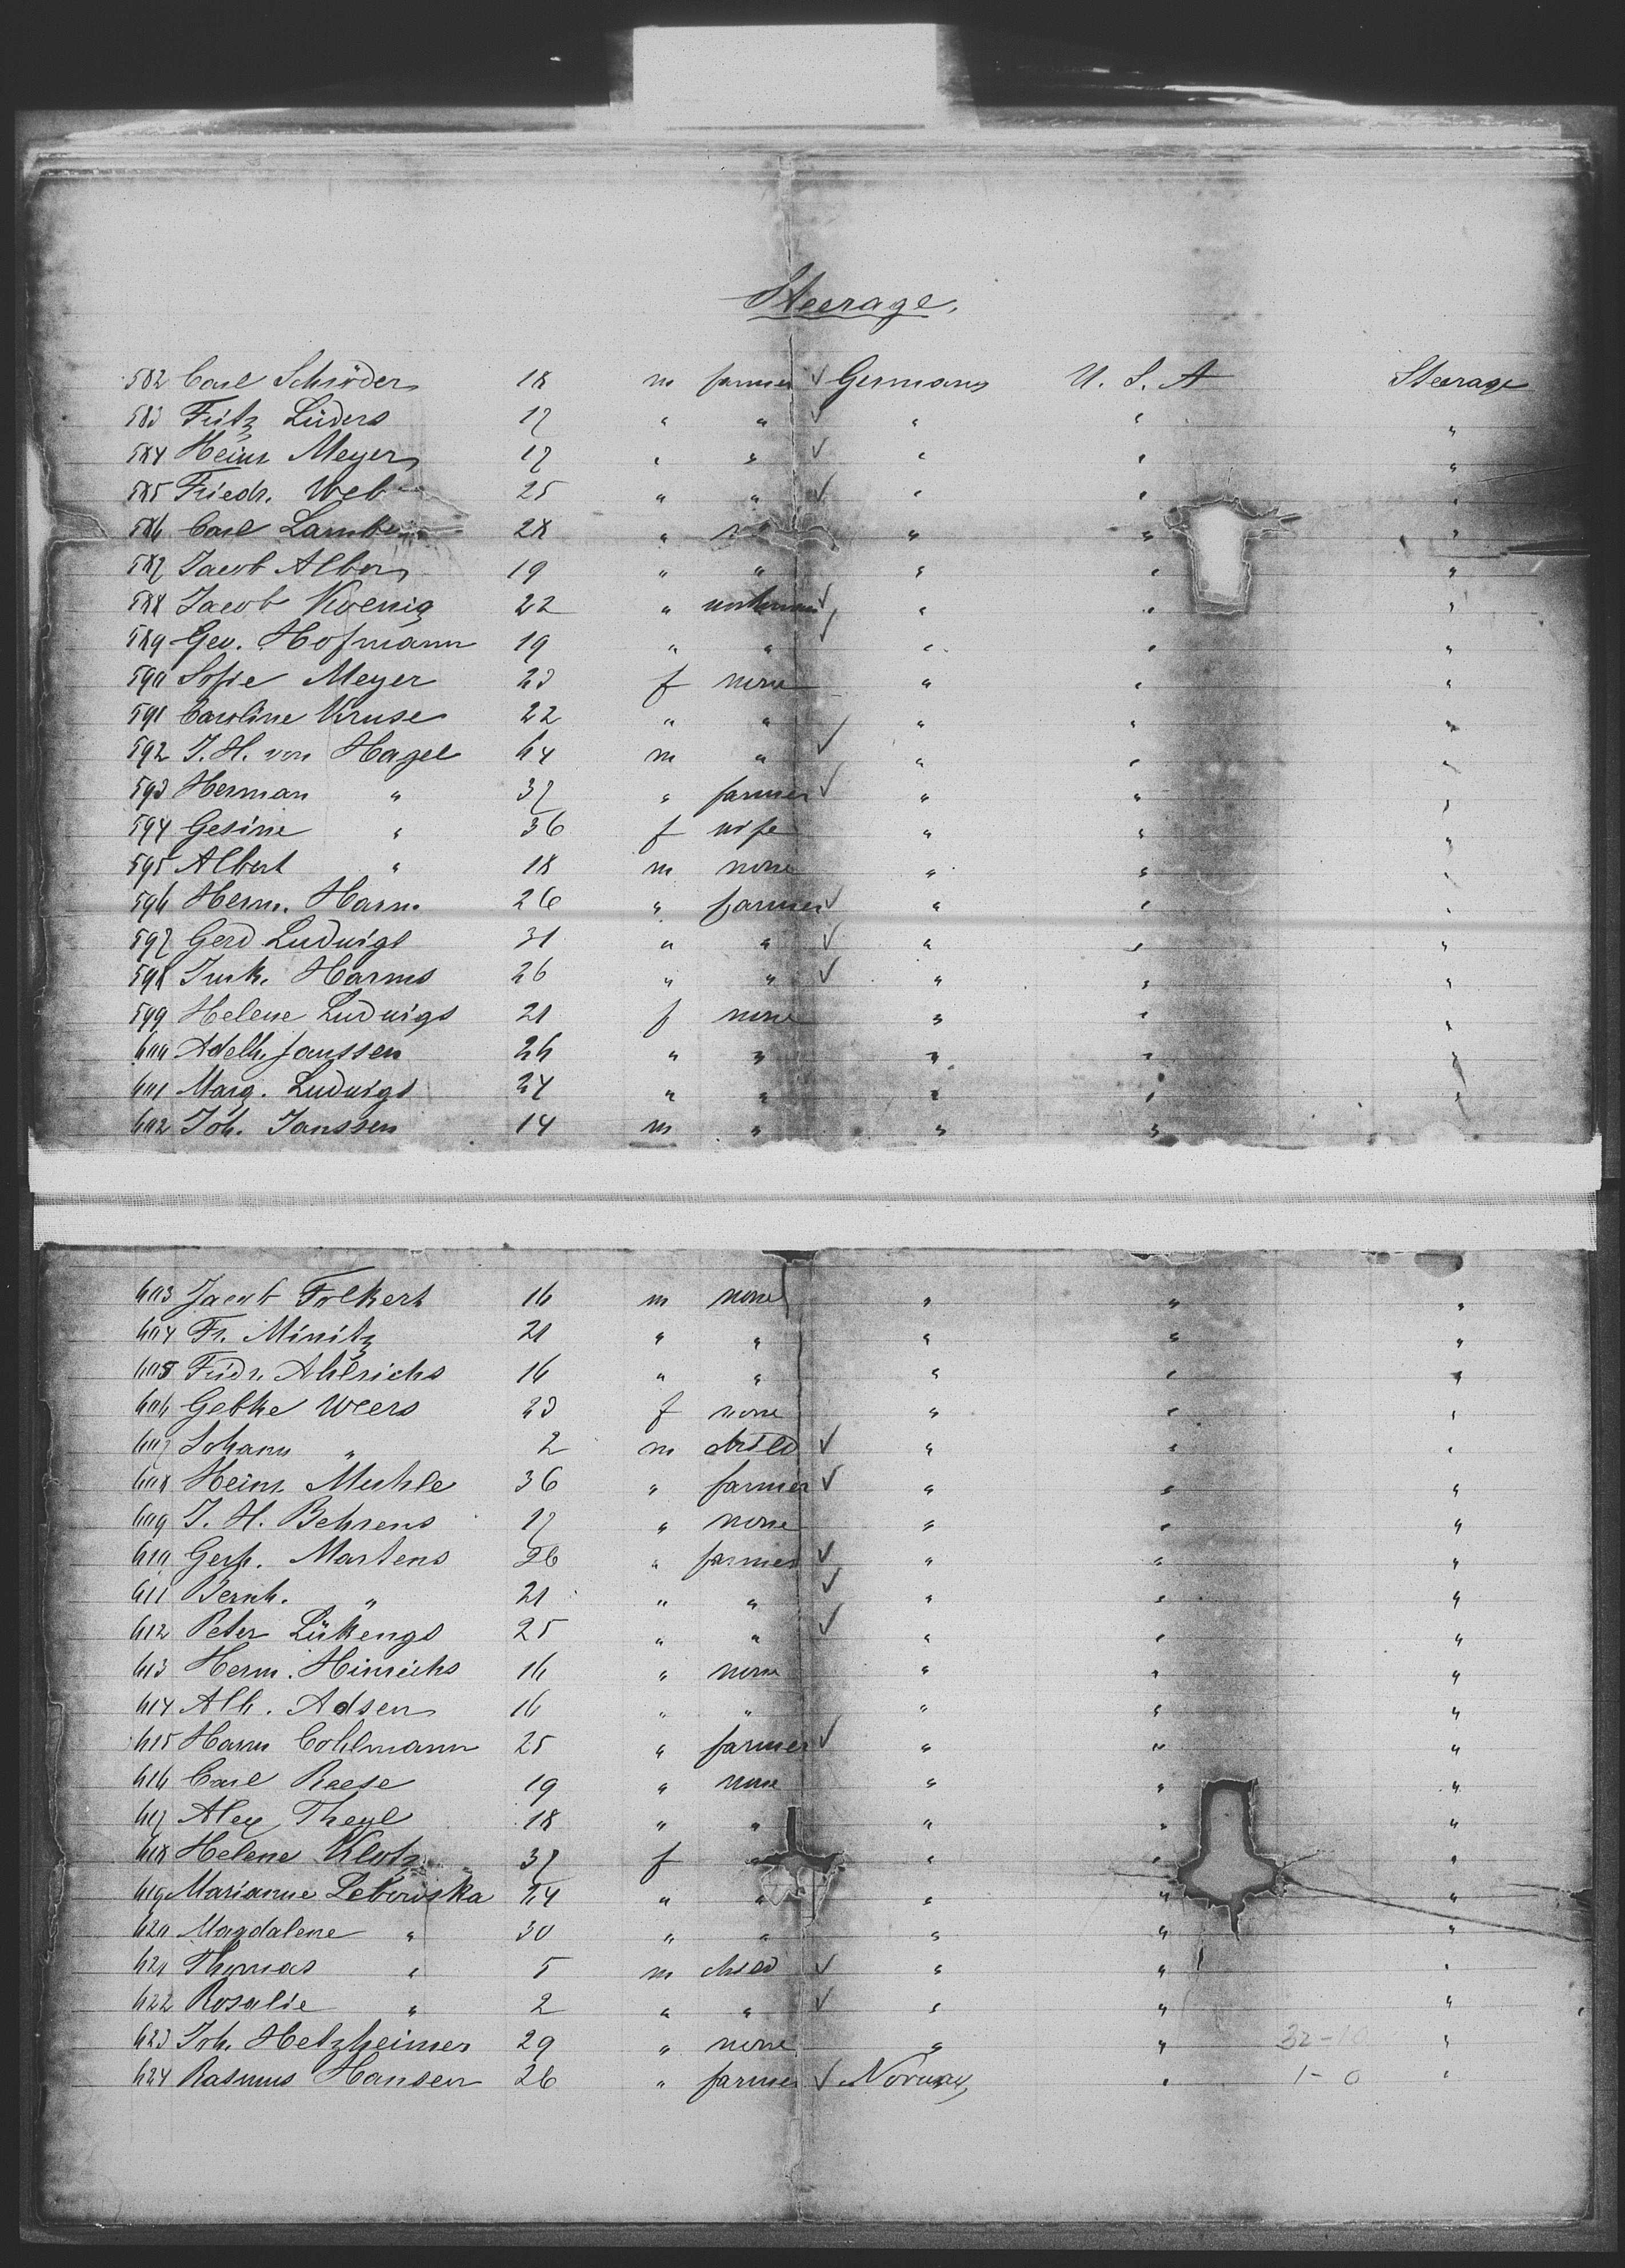 Steerage.
582 Carl Schröder 18 m farmer ✓ Germany U. S. A Steerage
583 Fritz Lüders 17 " " ✓ " " "
584 Heinr Meyer 17 " " ✓ " " "
585 Friedr. Web 25 " " ✓ " " "
586 Carl Lambe 28 " " " " "
587 Jacob Albers 19 " " " " "
588 Jacob Koenig 22 " workman ✓ " " "
589 Geo. Hofmann 19 " " ✓ " " "
590 Sofie Meyer 23 f none " " "
591 Caroline Kruse 22 " " " " "
592 J. H. von Hagel 64 m " ✓ " " "
593 Herman " 37 " farmer ✓ " " "
594 Gesine " 36 f wife " " "
595 Albert " 18 m none " " "
596 Herm. Harm. 26 " farmer ✓ " " "
597 Gerd Ludwigs 31 " " ✓ " " "
598 Harms 26 " " ✓ " " "
599 Helene Ludwigs 21 f none " " "
600 Adelh. Janssen 26 " " " " "
601 Marg. Ludwigs 24 " " " " "
602 Joh. Janssen 14 m " " " "
603 Jacob Folkert 16 m none " " "
604 Fr. Minitz 21 " " " " "
605 Fridr. Ahlrichs 16 " " " " "
606 Gebke Weers 23 f none " " "
607 Johann " 2 m child ✓ " " "
608 Heinr. Muhle 36 " farmer ✓ " " "
609 J. H. Behrens 17 " none " " "
610 Gerh. Martens 26 " farmer ✓ " " "
611 Bernh. " 21 " " ✓ " " "
612 Peter Lükengs 25 " " ✓ " " "
613 Herm. Hinrichs 16 " none " " "
614 Alb. Adsen 16 " " " " "
615 Harm Cohlmann 25 " farmer ✓ " " "
616 Carl Raese 19 " none " " "
617 Alex Theyl 18 " " " " "
618 Helene Klotz 37 f " " " "
619 Marianne Lebowska 24 " " " " "
620 Magdalene " 30 " " " " "
621 Thomas " 5 m child ✓ " " "
622 Rosalie " 2 " " ✓ " " "
623 Joh. Hetzheimer 29 " none " " 32-10 "
624 Rasmus Hansen 26 " farmer ✓ Norway " 1-0 "